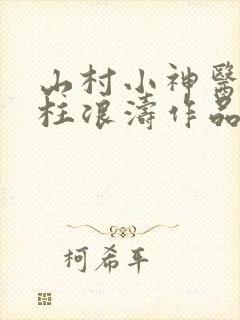 山村小神醫
柱浪濤作品
柯希平